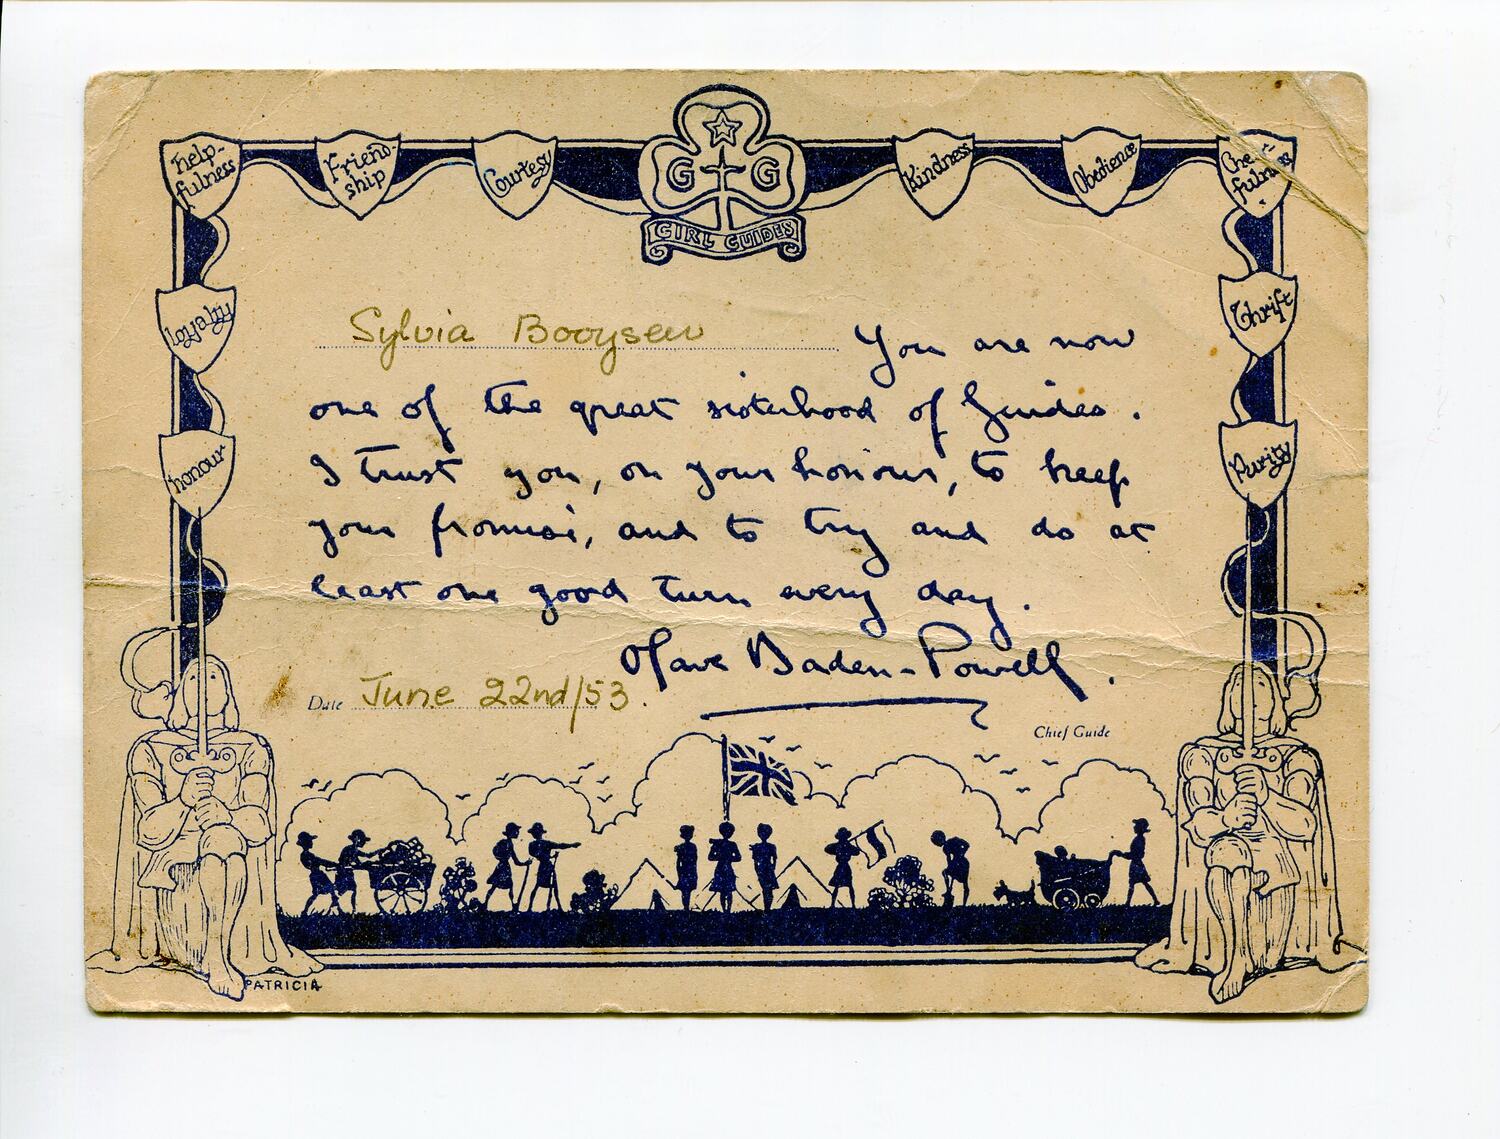 Help-
fulness
Friend-
ship
Courtesy
G G
GIRL GUIDES
Kindness
Obedience
Cheer-
fulness
Loyalty
Thrift
Honour
Purity
Sylvia Booysen You are now
one of the great sisterhood of Guides.
I trust you, on your honour, to keep
your promise, and to try and do at
least one good turn every day.
Olave Baden-Powell.
Date June 22nd/53.
Chief Guide
PATRICIA